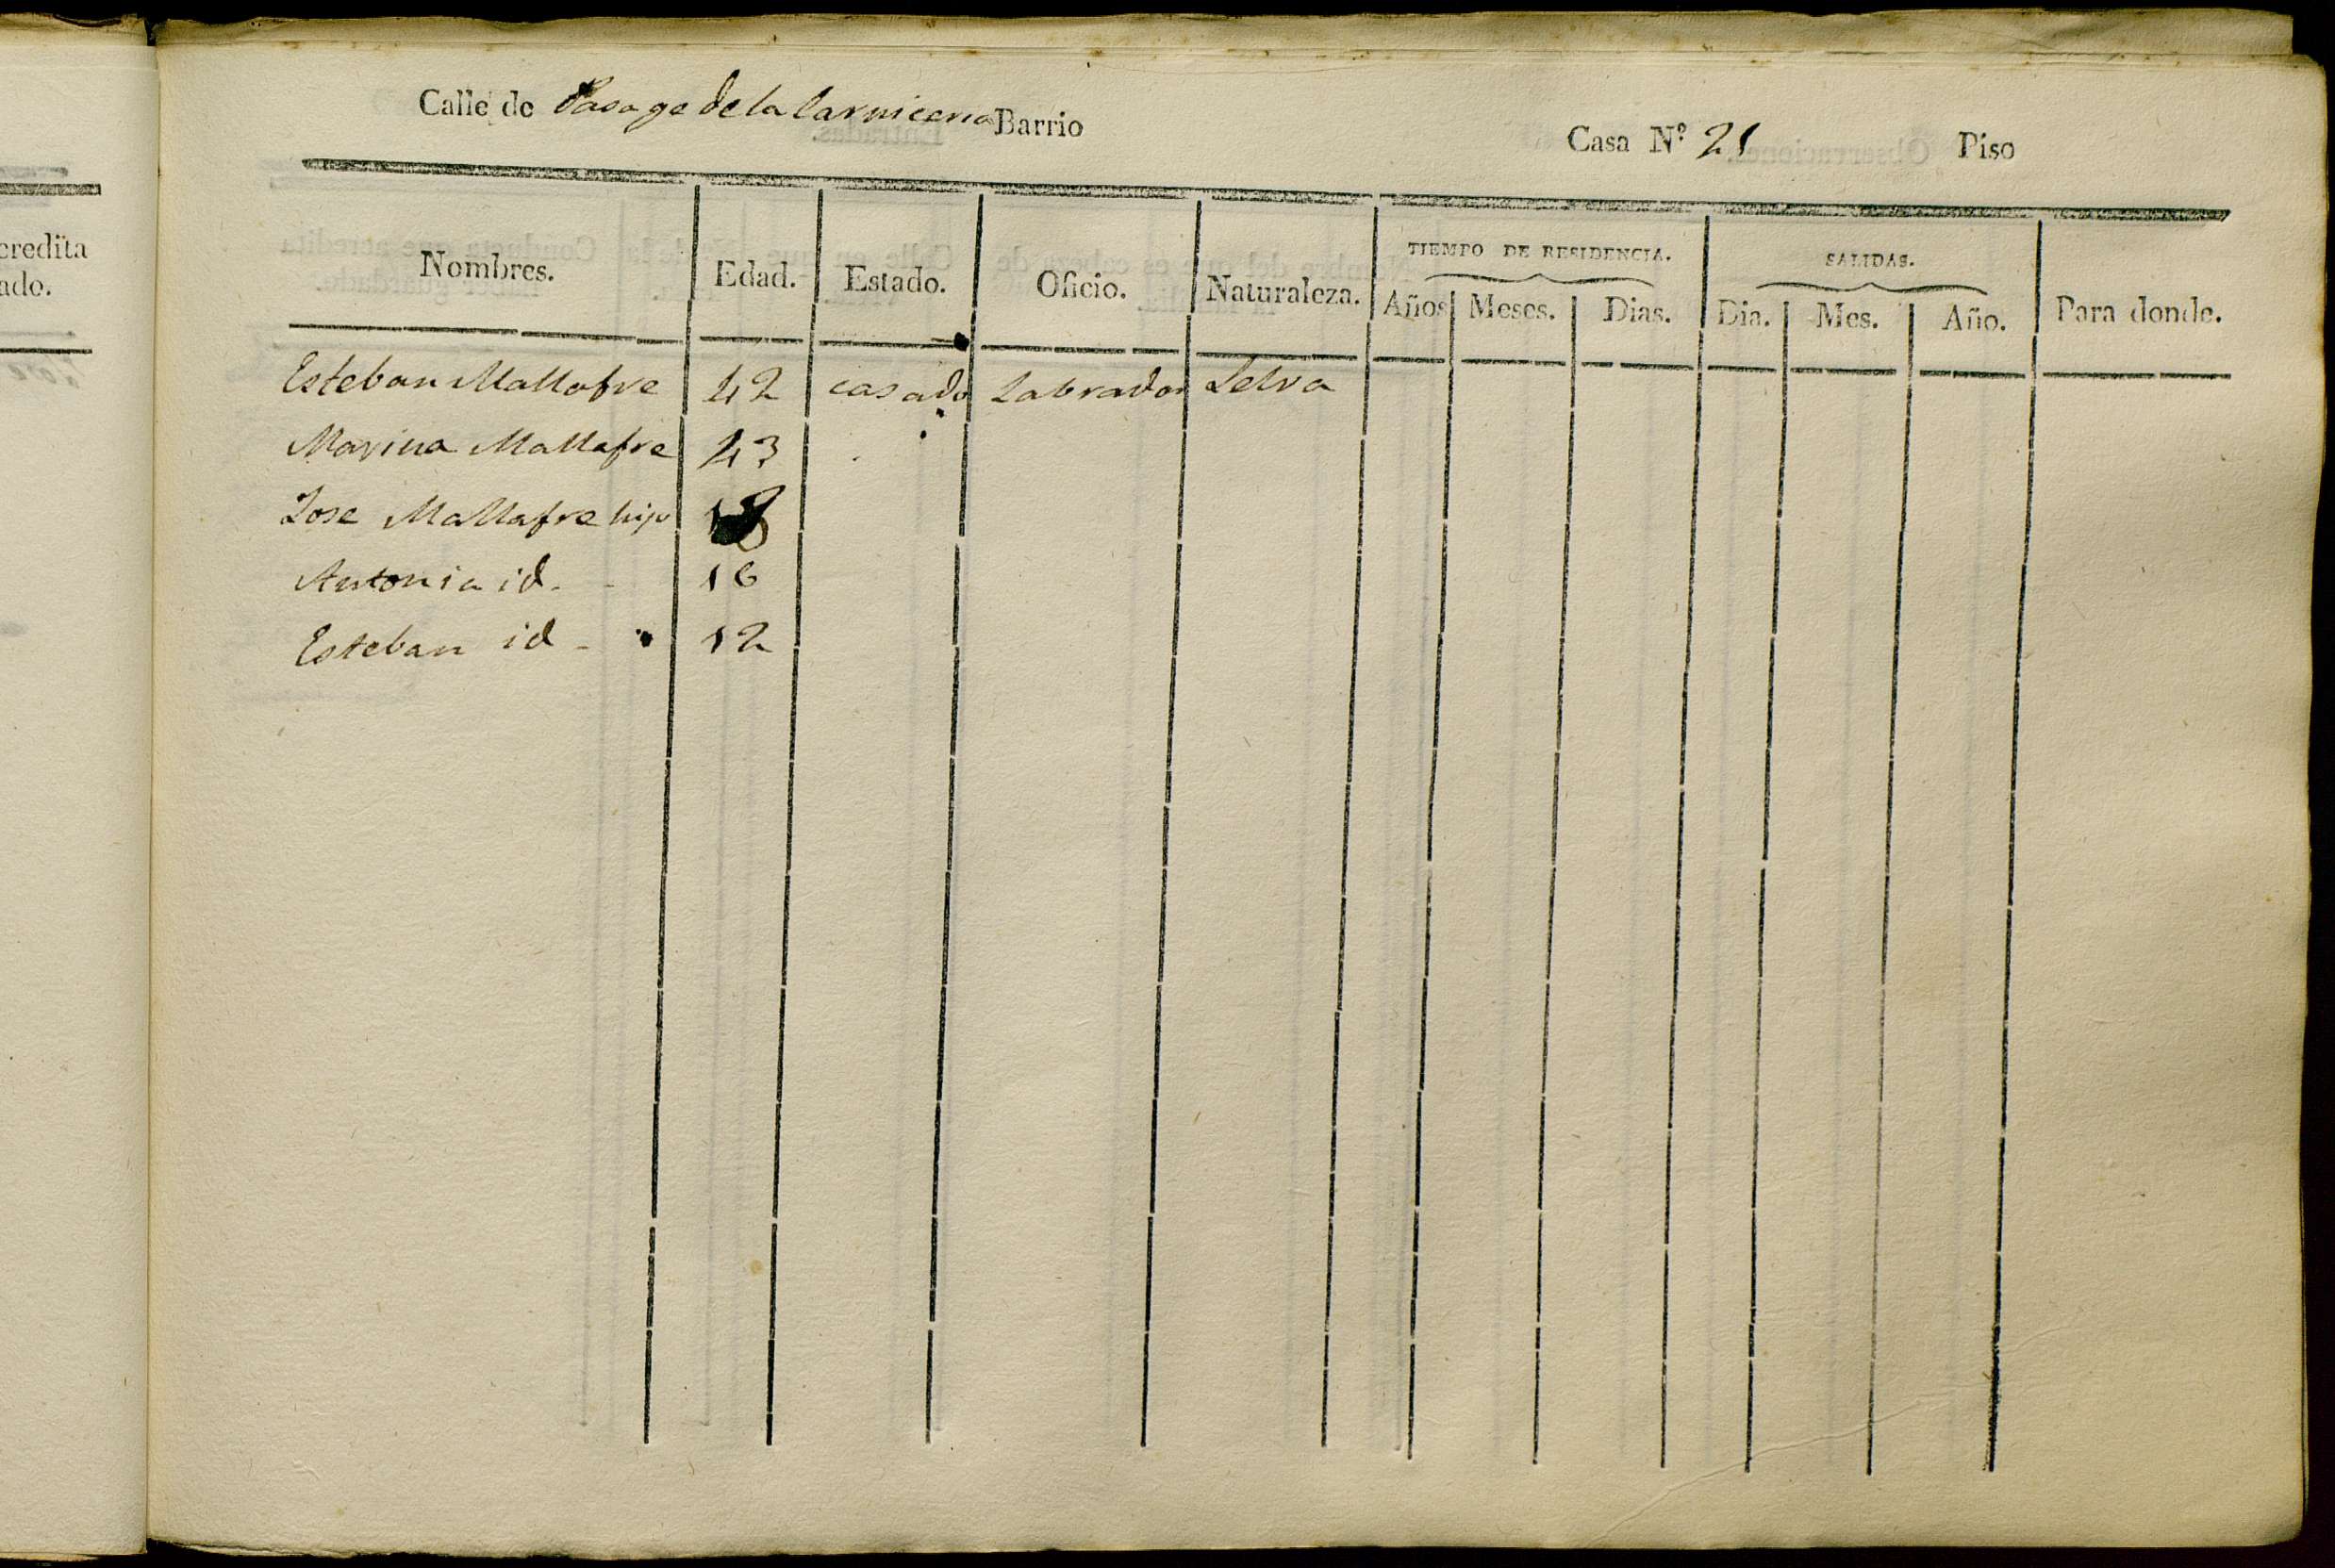 credita
ado.
Calle de Pasage de la Carniceria Barrio Casa N.º 21 Piso
Nombres. Edad. Estado. Oficio. Naturaleza. TIEMPO DE RESIDENCIA. SALIDAS. Para donde.
Años Meses. Dias. Dia. Mes. Año.
Esteban Mallafre 42 casado Labrador Selva
Marina Mallafre 43
Jose Mallafre hijo 18
Antonia id. 16
Esteban id 12